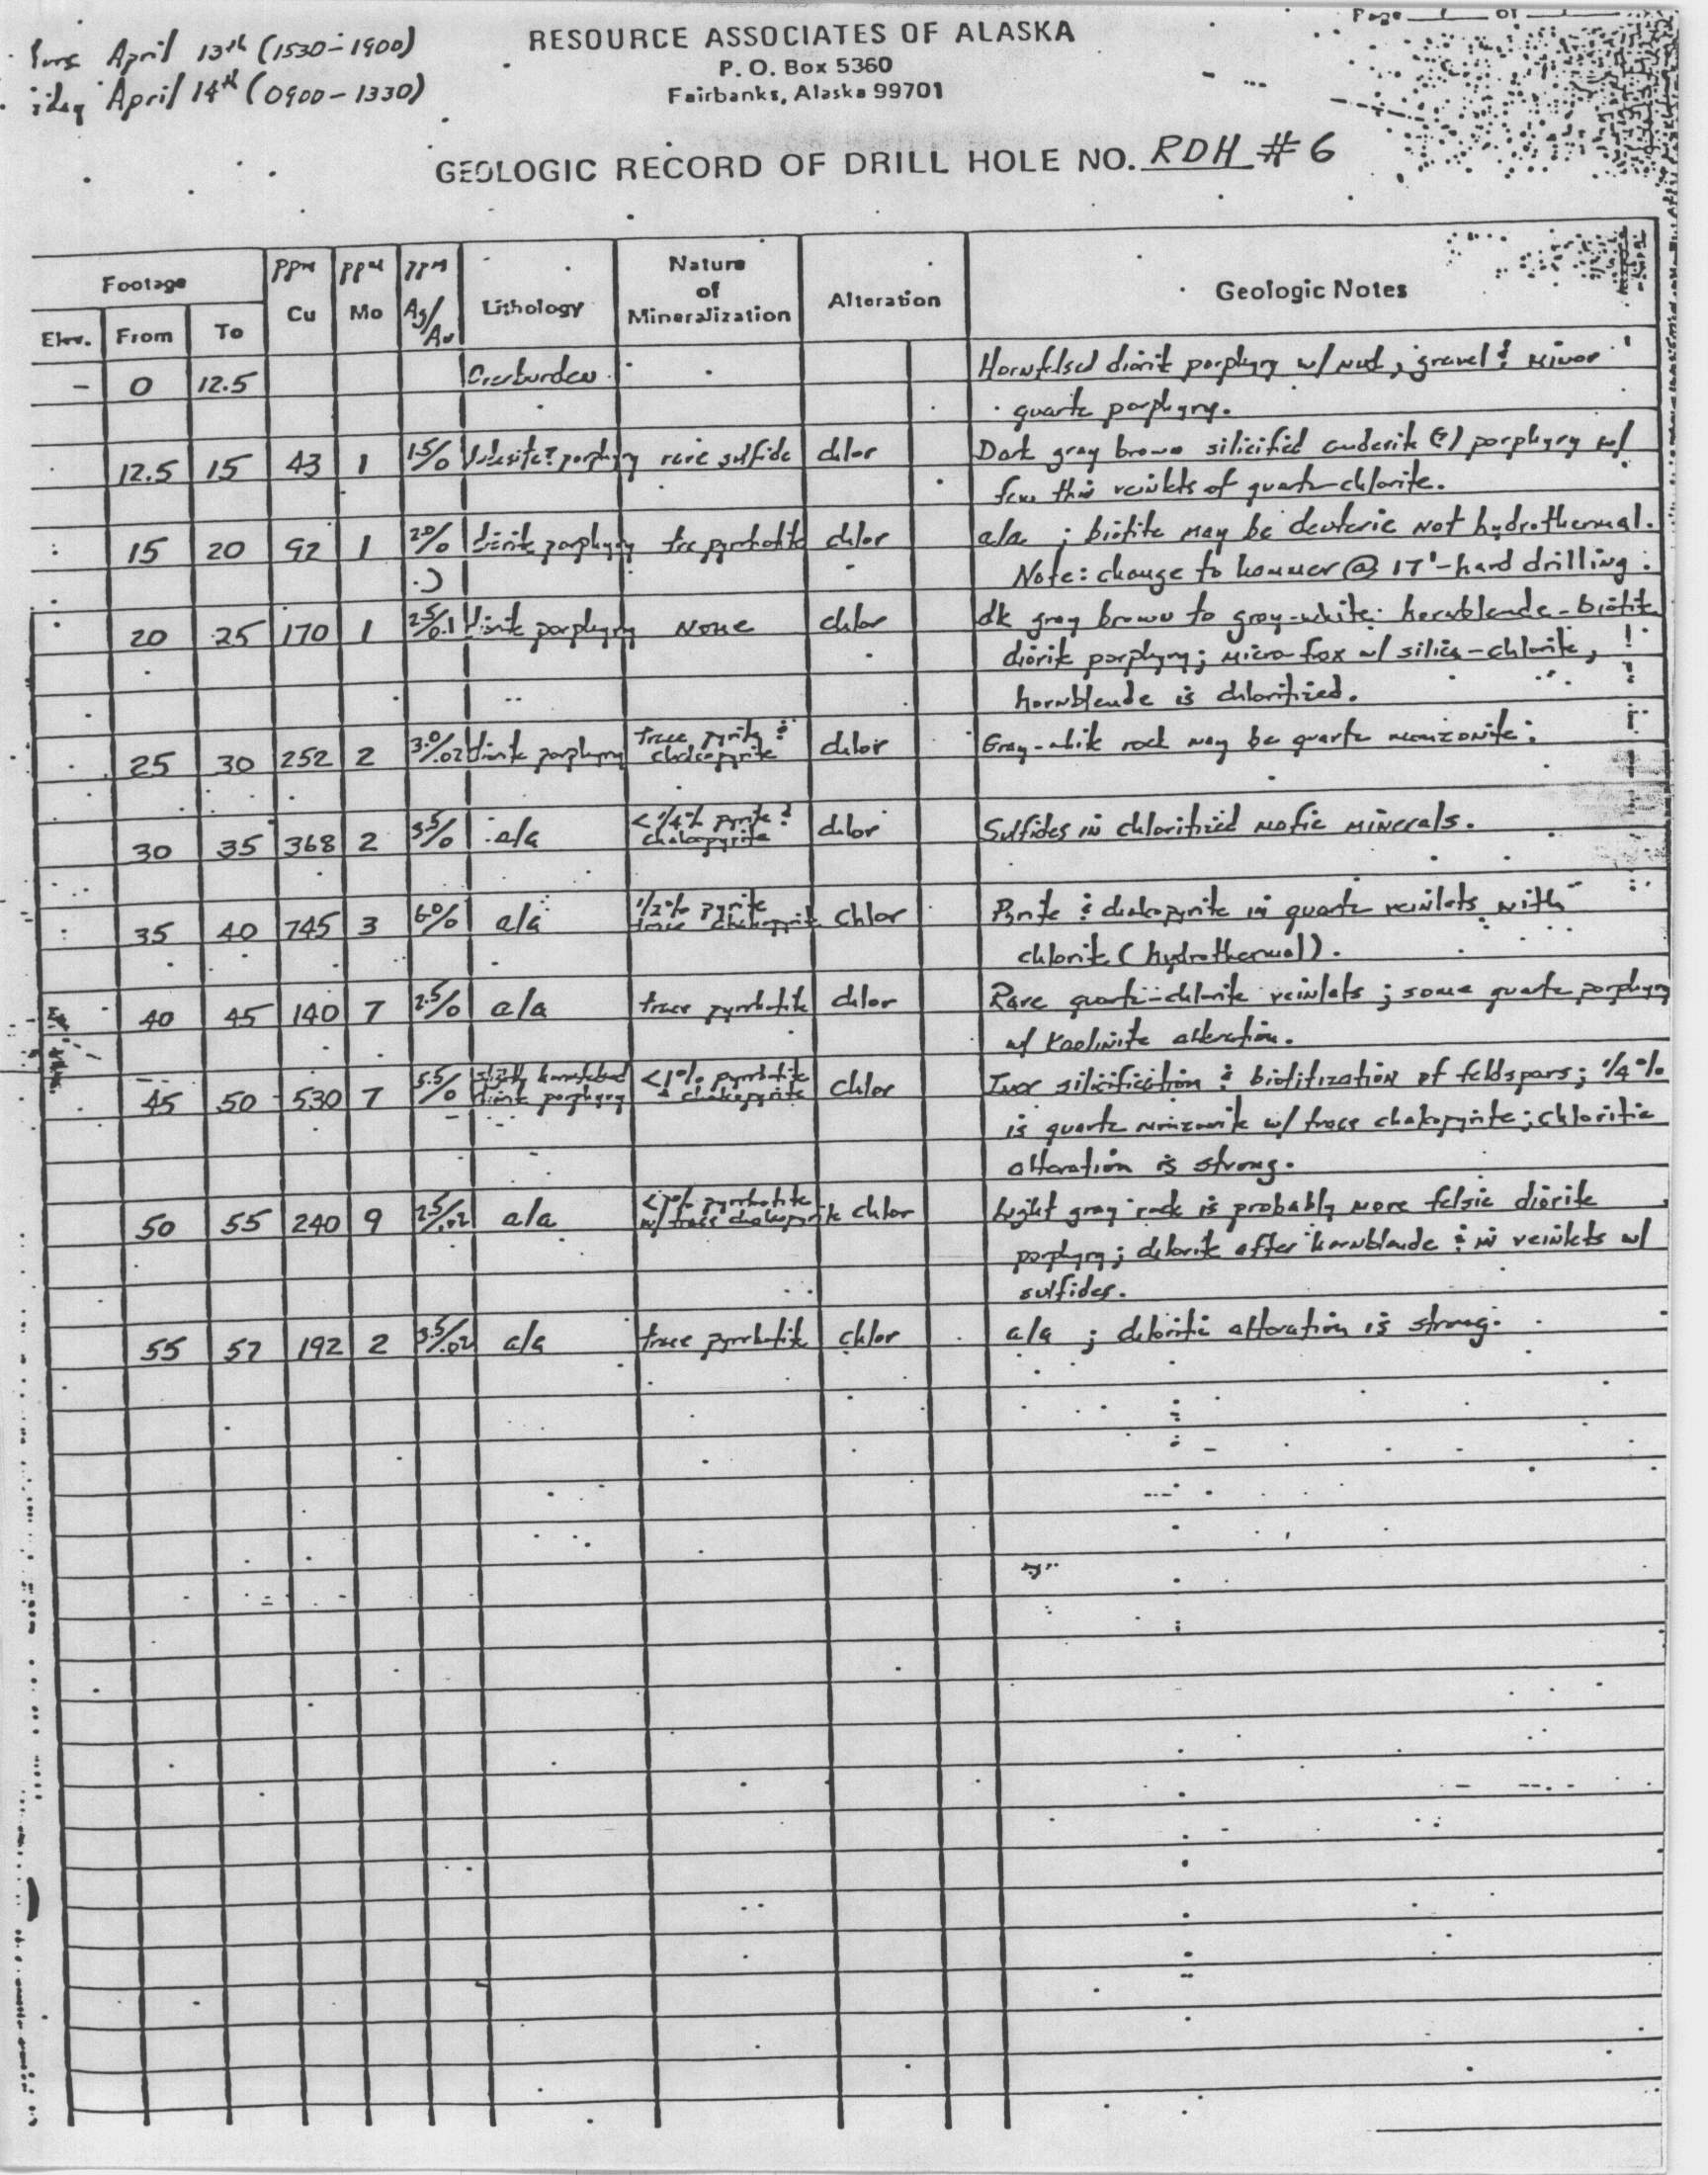 Page 1 of 1
April 13th (1530-1900)
April 14th (0900-1330)
RESOURCE ASSOCIATES OF ALASKA
P. O. Box 5360
Fairbanks, Alaska 99701
GEOLOGIC RECORD OF DRILL HOLE NO. RDH #6
Footage
Elev. From To
ppm Cu
ppm Mo
ppm Ag/Au
Lithology
Nature of Mineralization
Alteration
Geologic Notes
- 0 12.5 Overburden Hornfelsed diorite porphyry w/ mud, gravel & minor
quartz porphyry.
12.5 15 43 1 1.5/0 Andesite? porphyry rare sulfide chlor Dark gray brown silicified andesite (?) porphyry w/
few thin veinlets of quartz-chlorite.
15 20 92 1 2.0/0 diorite porphyry trc pyrrhotite chlor a/a ; biotite may be deuteric not hydrothermal.
Note: change to hammer @ 17'-hard drilling.
20 25 170 1 2.5/0.1 diorite porphyry None chlor dk gray brown to gray-white hornblende-biotite
diorite porphyry; micro frax w/ silica-chlorite,
hornblende is chloritized.
25 30 252 2 3.0/.02 diorite porphyry trace pyrite & chalcopyrite chlor Gray-white rock may be quartz monzonite.
30 35 368 2 3.5/0 a/a <1/4% pyrite & chalcopyrite chlor Sulfides in chloritized mafic minerals.
35 40 745 3 6.0/0 a/a 1/2% pyrite trace chalcopyrite chlor Pyrite & chalcopyrite in quartz veinlets with
chlorite (hydrothermal).
40 45 140 7 2.5/0 a/a trace pyrrhotite chlor Rare quartz-chlorite veinlets ; some quartz porphyry
w/ kaolinite alteration.
45 50 530 7 5.5/0 slightly hornfelsed diorite porphyry <1% pyrrhotite + chalcopyrite chlor Incr silicification & biotitization of feldspars; 1/4%
is quartz monzonite w/ trace chalcopyrite; chloritic
alteration is strong.
50 55 240 9 2.5/.02 a/a <1% pyrrhotite w/ trace chalcopyrite chlor Light gray rock is probably more felsic diorite
porphyry; chlorite after hornblende & in veinlets w/
sulfides.
55 57 192 2 3.5/.02 a/a trace pyrrhotite chlor a/a ; chloritic alteration is strong.